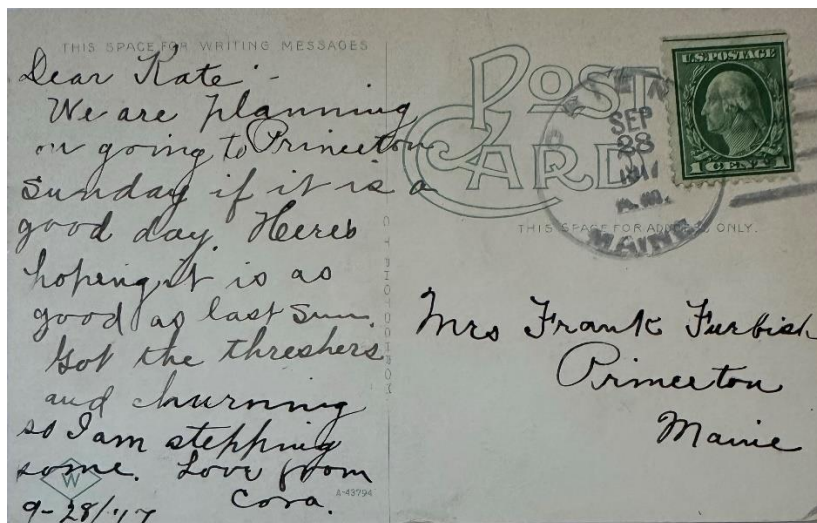 THIS SPACE FOR WRITING MESSAGES
Dear Kate:-
We are planning
on going to Princeton
Sunday if it is a
good day. Here's
hoping it is as
good as last Sun.
Got the threshers
and churning
so I am stepping
some. Love from
Cora.
9-28/17
W
A-43794
POST CARD
U.S. POSTAGE
1 CENT 1
SEP
28
1917
A.M.
MAINE
THIS SPACE FOR ADDRESS ONLY.
Mrs Frank Furbish
Princeton
Maine